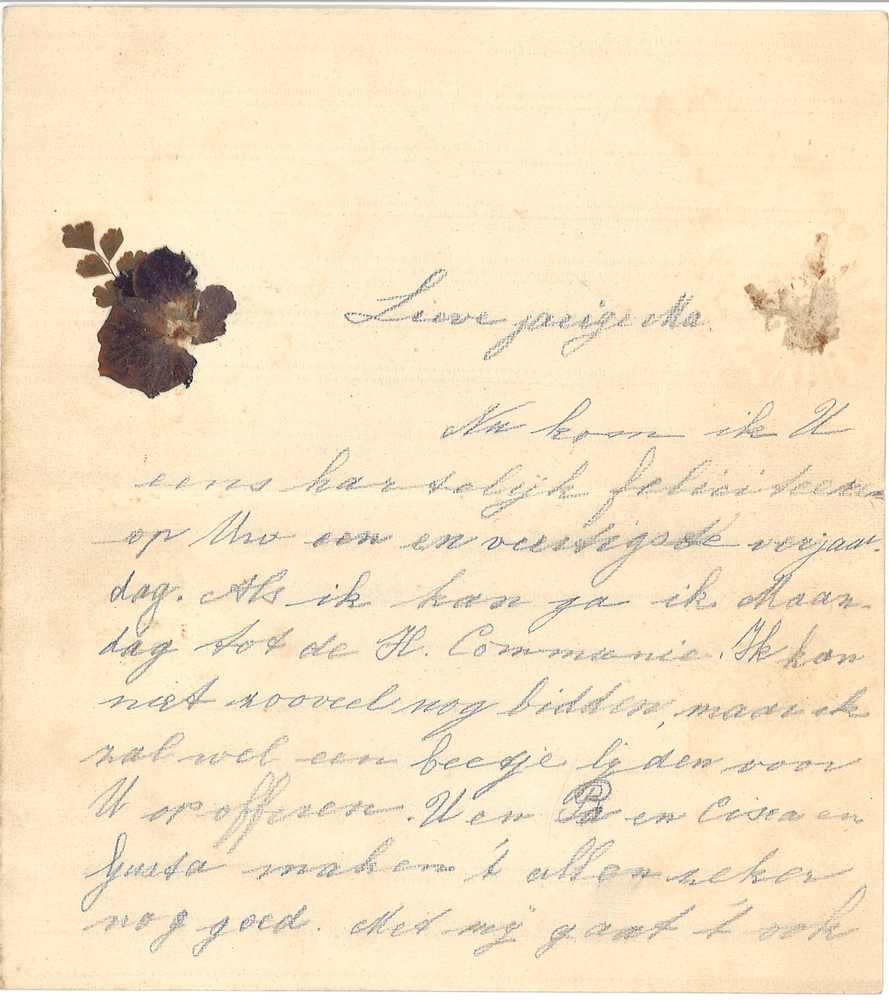 Lieve jarige Ma
Nu kom ik U
eens hartelijk feliciteeren
op Uw een en veertigste verjaar-
dag. Als ik kan ga ik Maan-
dag tot de H. Communie. Ik kan
niet zooveel nog bidden, maar ik
zal wel een beetje lijden voor
U opofferen. U en Pa en Cisca en
Gusta maken 't allen zeker
nog goed. Met mij gaat 't ook